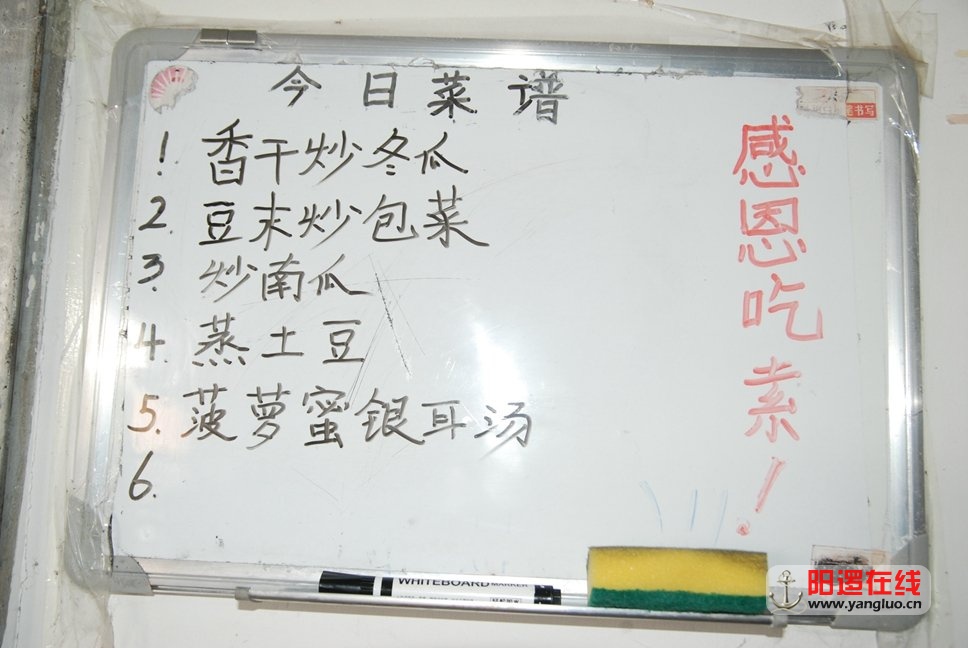 今日菜谱
1. 香干炒冬瓜
2. 豆末炒包菜
3. 炒南瓜
4. 蒸土豆
5. 菠萝蜜银耳汤
6.
感恩吃素!
书写
WHITEBOARD MARKER
阳逻在线
www.yangluo.cn